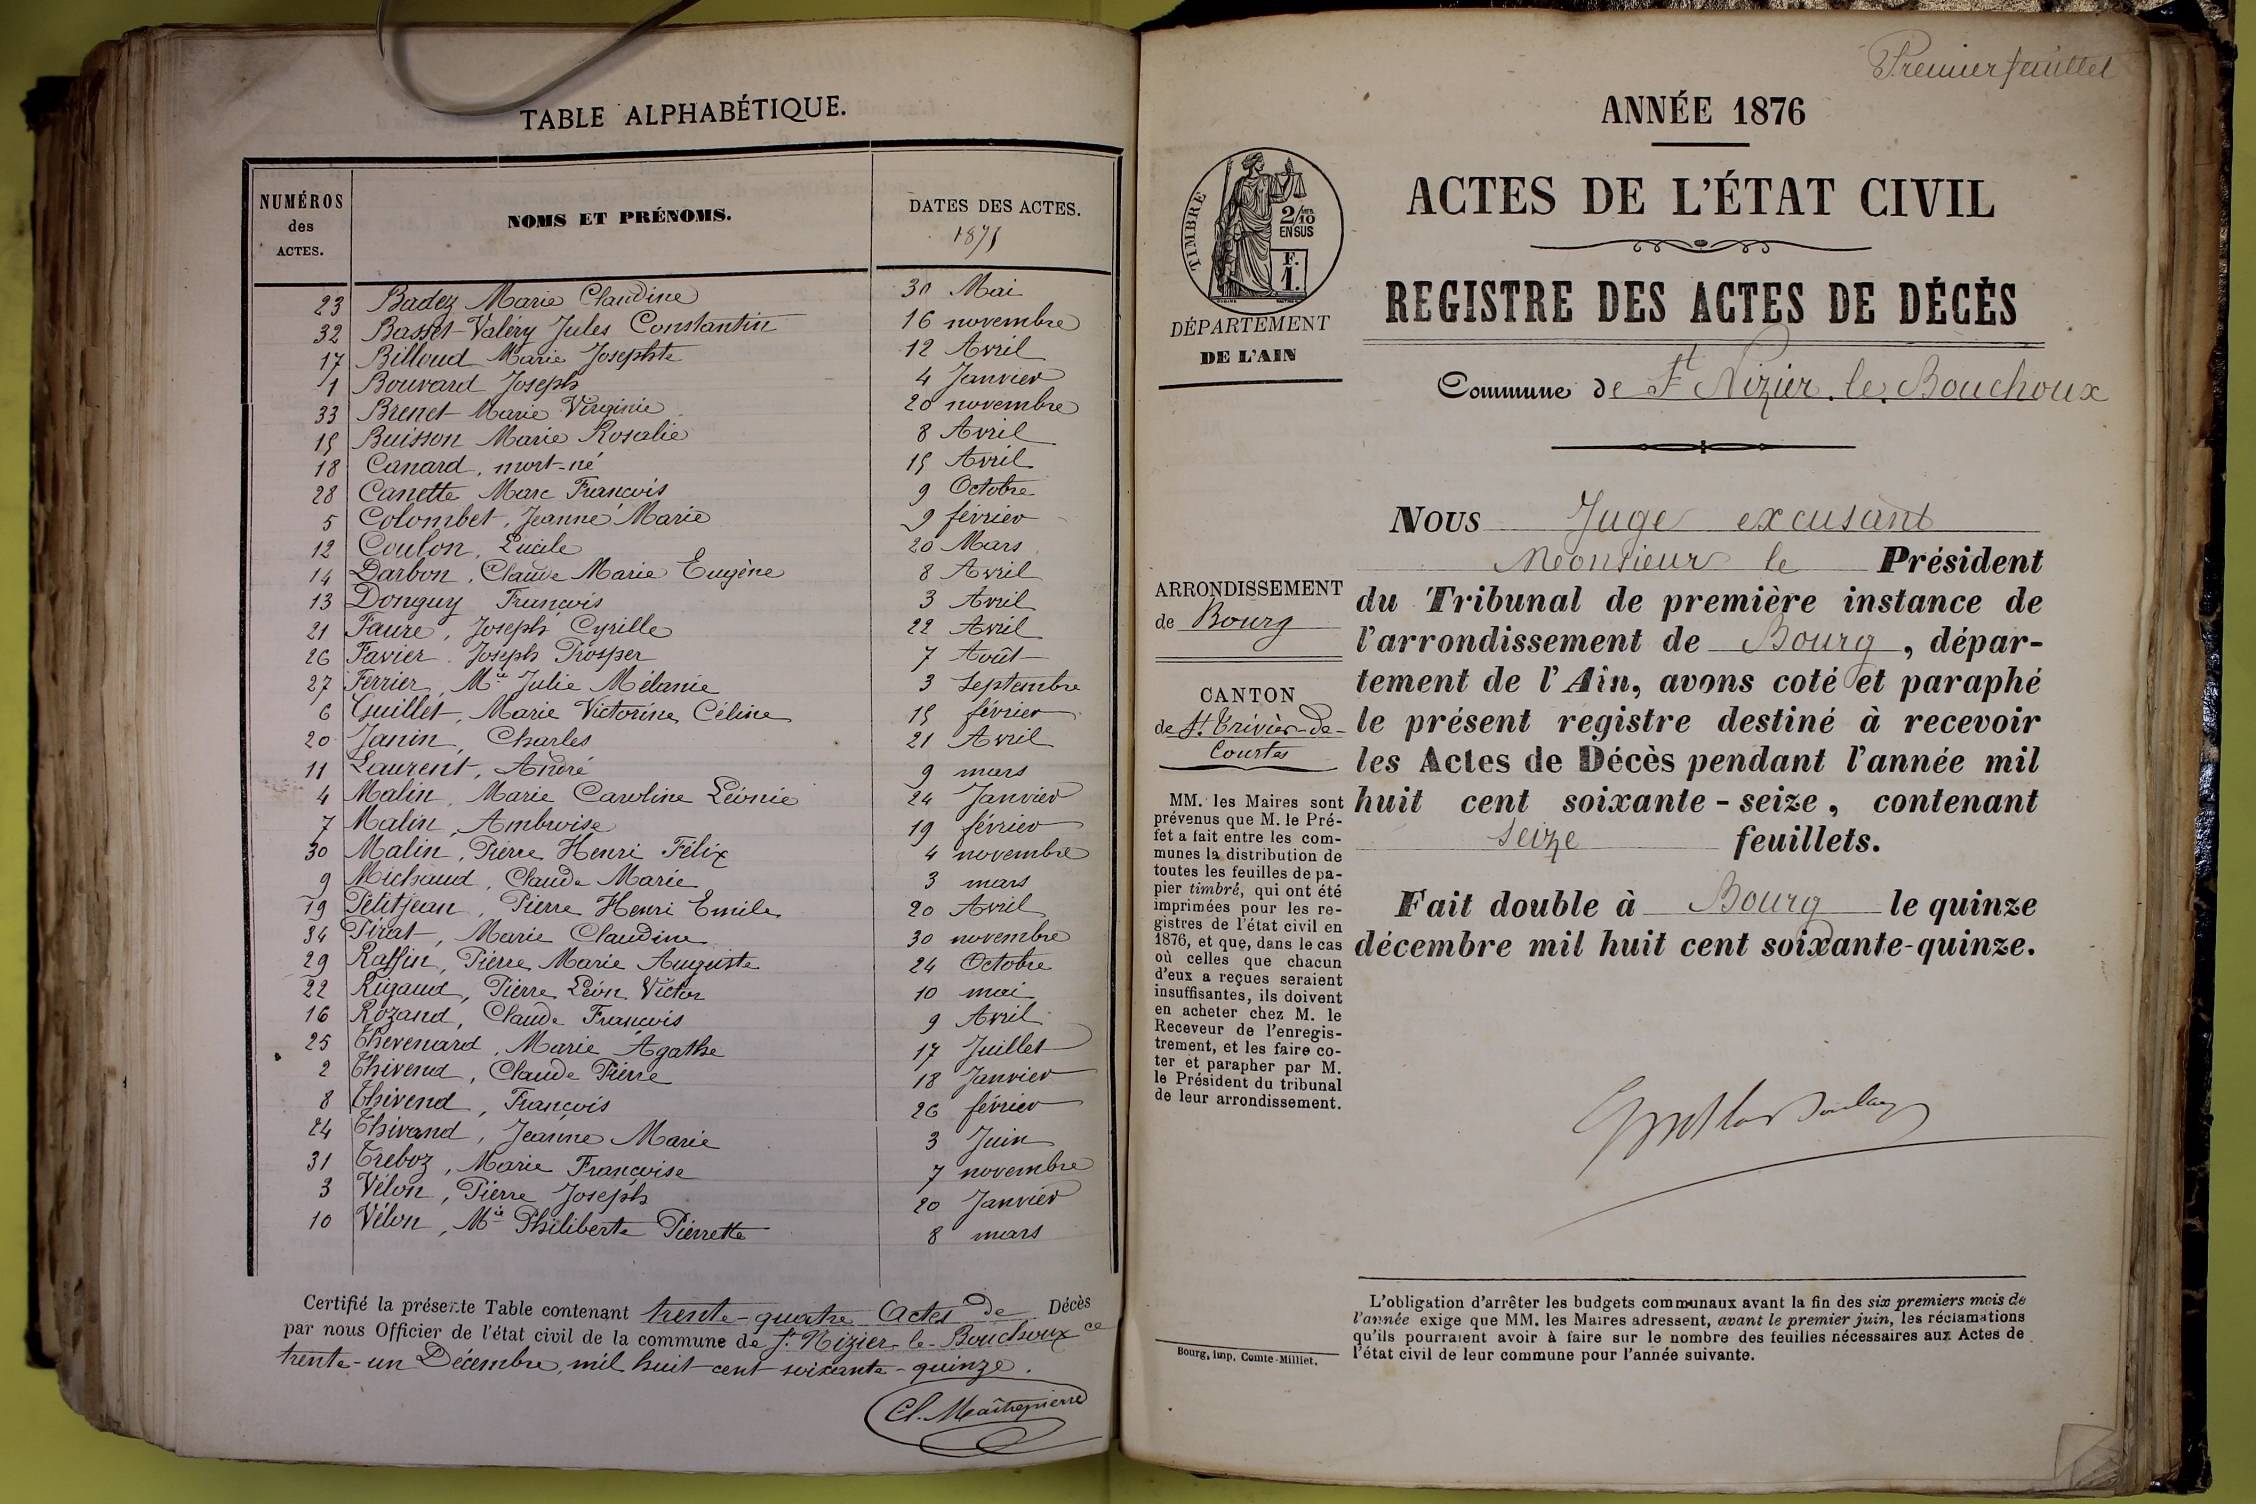 TABLE ALPHABÉTIQUE.
NUMÉROS
des
ACTES.
NOMS ET PRÉNOMS.
DATES DES ACTES.
1875
23 Badez Marie Claudine 30 Mai
32 Basset-Valéry Jules Constantin 16 novembre
17 Billoud Marie Josephte 12 Avril
1 Bouvard Joseph 4 Janvier
33 Brenet Marie Virginie 20 novembre
15 Buisson Marie Rosalie 8 Avril
18 Canard, mort-né 15 Avril
28 Canette Marc François 9 Octobre
5 Colombet, Jeanne Marie 9 février
12 Coulon, Lucile 20 Mars
14 Darbon, Claude Marie Eugène 8 Avril
13 Donguy François 3 Avril
21 Faure, Joseph Cyrille 22 Avril
26 Favier Joseph Prosper 7 Août
27 Ferrier, Mie Julie Mélanie 3 Septembre
6 Guillet, Marie Victorine Céline 15 février
20 Janin, Charles 21 Avril
11 Laurent, André 9 mars
4 Malin, Marie Caroline Léonie 24 Janvier
7 Malin, Ambroise 19 février
30 Malin, Pierre Henri Félix 4 novembre
9 Michaud, Claude Marie 3 mars
19 Petitjean, Pierre Henri Emile 20 Avril
34 Pirat, Marie Claudine 30 novembre
29 Raffin, Pierre Marie Auguste 24 Octobre
22 Rigaud, Pierre Léon Victor 10 mai
16 Rozand, Claude François 9 Avril
25 Thevenard, Marie Agathe 17 Juillet
2 Thivend, Claude Pierre 18 Janvier
8 Thivend, François 26 février
24 Thivand, Jeanne Marie 3 Juin
31 Treboz, Marie Françoise 7 novembre
3 Vélon, Pierre Joseph 20 Janvier
10 Vélon, Mie Philiberte Pierrette 8 mars
Certifié la présente Table contenant trente-quatre Actes de Décès
par nous Officier de l'état civil de la commune de St Nizier-le-Bouchoux ce
trente-un Décembre, mil huit cent soixante-quinze.
Cl. Maîtrepierre
Premier feuillet
ANNÉE 1876
ACTES DE L'ÉTAT CIVIL
REGISTRE DES ACTES DE DÉCÈS
TIMBRE
2/10
EN SUS
F.
1.
DÉPARTEMENT
DE L'AIN
Commune de St Nizier le Bouchoux
Nous Juge excusant
Monsieur le Président
du Tribunal de première instance de
l'arrondissement de Bourg, dépar-
tement de l'Ain, avons coté et paraphé
le présent registre destiné à recevoir
les Actes de Décès pendant l'année mil
huit cent soixante-seize, contenant
seize feuillets.
Fait double à Bourg le quinze
décembre mil huit cent soixante-quinze.
ARRONDISSEMENT
de Bourg
CANTON
de St Trivier-de-
Courtes
MM. les Maires sont
prévenus que M. le Pré-
fet a fait entre les com-
munes la distribution de
toutes les feuilles de pa-
pier timbré, qui ont été
imprimées pour les re-
gistres de l'état civil en
1876, et que, dans le cas
où celles que chacun
d'eux a reçues seraient
insuffisantes, ils doivent
en acheter chez M. le
Receveur de l'enregis-
trement, et les faire co-
ter et parapher par M.
le Président du tribunal
de leur arrondissement.
L'obligation d'arrêter les budgets communaux avant la fin des six premiers mois de
l'année exige que MM. les Maires adressent, avant le premier juin, les réclamations
qu'ils pourraient avoir à faire sur le nombre des feuilles nécessaires aux Actes de
l'état civil de leur commune pour l'année suivante.
Bourg, imp. Comte-Milliet.